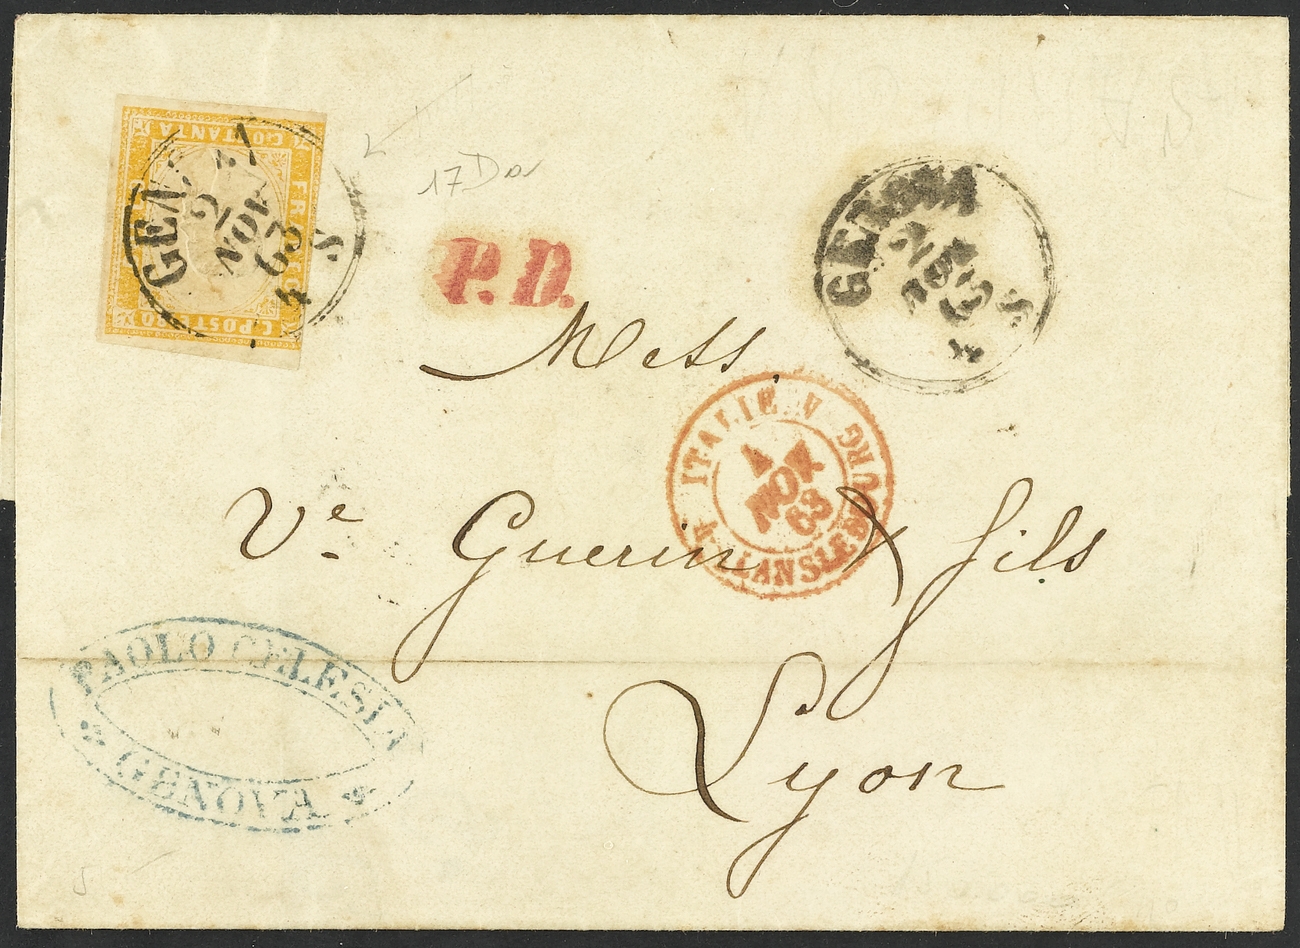 C. OTTANTA
FRANCO
C. POSTE 80
GENOVA
2
NOV
63
4 S
17 D or
P. D.
GENOVA
2
NOV
63
4 S
Mess.
ITALIE. V
4
NOV
63
LANSLEBOURG
4
Ve Guerin & fils
Lyon
PAOLO CELESIA
GENOVA